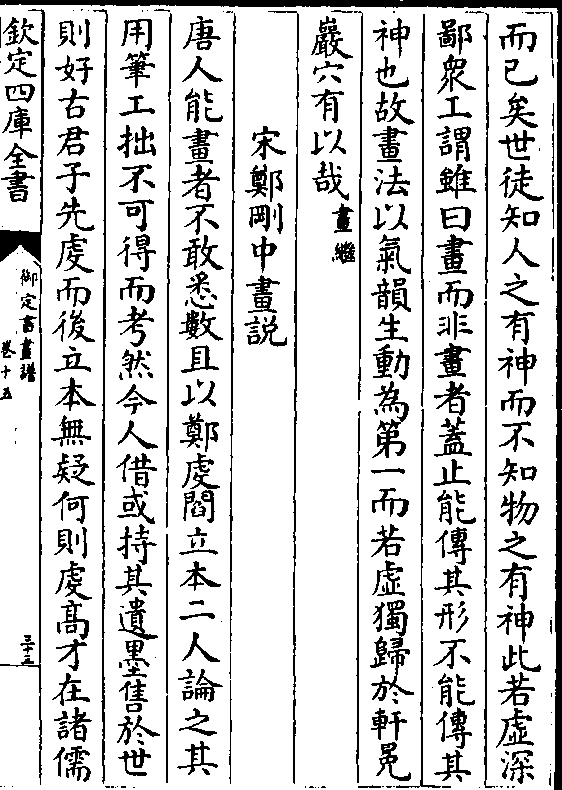 而已矣世徒知人之有神而不知物之有神此若虛深
鄙衆工謂雖曰畫而非畫者蓋止能傳其形不能傳其
神也故畫法以氣韻生動為第一而若虛獨歸於軒冕
巖穴有以哉畫繼
宋鄭剛中畫説
唐人能畫者不敢悉數且以鄭虔閻立本二人論之其
用筆工拙不可得而考然今人借或持其遺墨售於世
則好古君子先虔而後立本無疑何則虔高才在諸儒
欽定四庫全書
御定書畫譜
卷十五
三十五